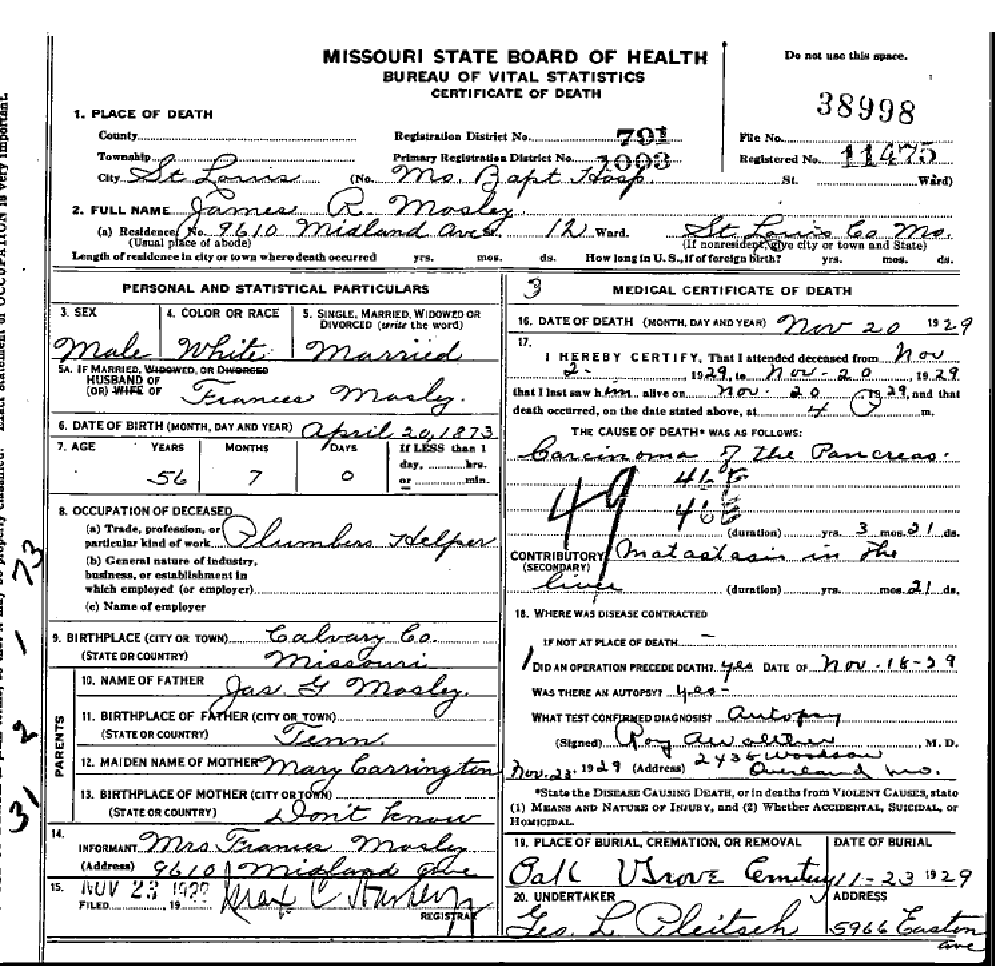 MISSOURI STATE BOARD OF HEALTH
BUREAU OF VITAL STATISTICS
CERTIFICATE OF DEATH
Do not use this space.
38998
1. PLACE OF DEATH
County Registration District No. 791 File No.
Township Primary Registration District No. 1003 Registered No. 11475
City St Louis (No. Mo. Bapt Hosp. St. Ward)
2. FULL NAME James R. Mosley.
(a) Residence. No. 9610 Midland Ave. 12 Ward. St. Louis Co Mo.
(Usual place of abode) (If nonresident give city or town and State)
Length of residence in city or town where death occurred yrs. mos. ds. How long in U. S., if of foreign birth? yrs. mos. ds.
PERSONAL AND STATISTICAL PARTICULARS
3. SEX 4. COLOR OR RACE 5. SINGLE, MARRIED, WIDOWED OR
DIVORCED (write the word)
Male White Married
5A. IF MARRIED, WIDOWED, OR DIVORCED
HUSBAND OF
(OR) WIFE OF Frances Mosly.
6. DATE OF BIRTH (MONTH, DAY AND YEAR) April 20, 1873
7. AGE YEARS MONTHS DAYS If LESS than 1
day, hrs.
56 7 0 or min.
8. OCCUPATION OF DECEASED
(a) Trade, profession, or
particular kind of work Plumbers Helper
(b) General nature of industry,
business, or establishment in
which employed (or employer)
(c) Name of employer
9. BIRTHPLACE (CITY OR TOWN) Calvary Co.
(STATE OR COUNTRY) Missouri
PARENTS
10. NAME OF FATHER Jas. G Mosley.
11. BIRTHPLACE OF FATHER (CITY OR TOWN)
(STATE OR COUNTRY) Tenn.
12. MAIDEN NAME OF MOTHER Mary Carrington
13. BIRTHPLACE OF MOTHER (CITY OR TOWN)
(STATE OR COUNTRY) Don't know
14.
INFORMANT Mrs Frances Mosley
(Address) 9610 Midland Ave
15. NOV 23 19
FILED 19 Max C Starkloff
REGISTRAR
3 MEDICAL CERTIFICATE OF DEATH
16. DATE OF DEATH (MONTH, DAY AND YEAR) Nov 20 1929
17.
I HEREBY CERTIFY, That I attended deceased from Nov
2- 1929, to Nov-20 1929
that I last saw him alive on Nov. 20 1929, and that
death occurred, on the date stated above, at 4 P m.
THE CAUSE OF DEATH* WAS AS FOLLOWS:
Carcinoma of the Pancreas.
49
46
46
(duration) yrs. 3 mos. 21 ds.
CONTRIBUTORY Matastasis in the
(SECONDARY)
liver (duration) yrs. mos. 21 ds.
18. WHERE WAS DISEASE CONTRACTED
IF NOT AT PLACE OF DEATH –
DID AN OPERATION PRECEDE DEATH? yes DATE OF Nov. 18-29
WAS THERE AN AUTOPSY? yes-
WHAT TEST CONFIRMED DIAGNOSIS? Autopsy
(Signed) Roy A Walther, M. D.
Nov. 23. 1929 (Address) 2436 Woodson
Overland Mo.
*State the DISEASE CAUSING DEATH, or in deaths from VIOLENT CAUSES, state
(1) MEANS AND NATURE OF INJURY, and (2) Whether ACCIDENTAL, SUICIDAL, or
HOMICIDAL.
19. PLACE OF BURIAL, CREMATION, OR REMOVAL DATE OF BURIAL
Oak Grove Cemetery 11-23 1929
20. UNDERTAKER ADDRESS
Geo. L Pleitsch 5966 Easton
ave
31 2 1 73